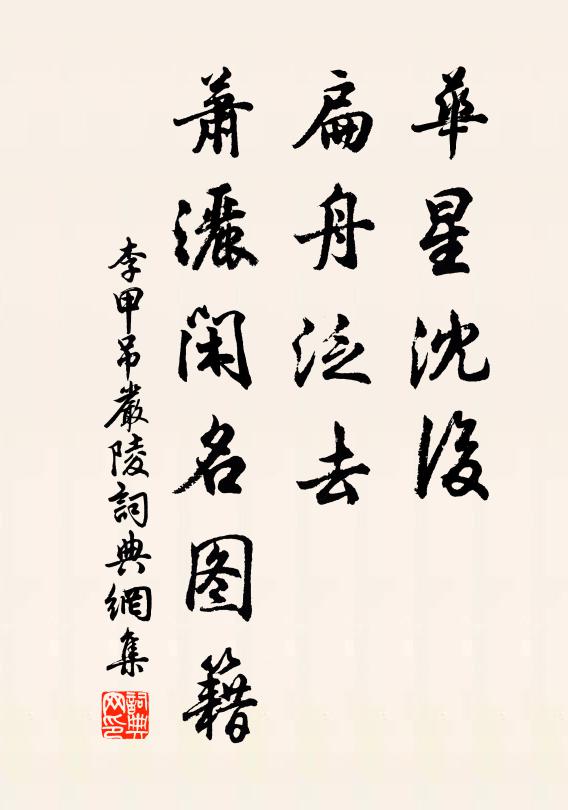 華星沈後
扁舟泛去
蕭灑閑名图籍
李甲吊嚴陵詞典網集
詞典網印